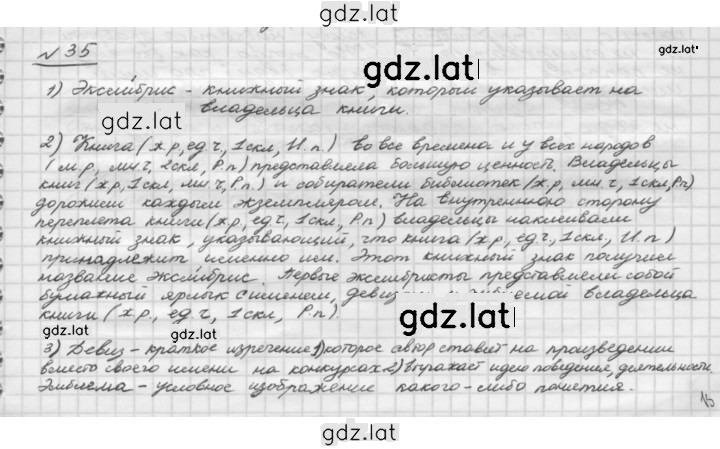 gdz.lat
№ 35
gdz.lat
gdz.lat
1) Экслибрис - книжный знак, который указывает на
владельца книги.
gdz.lat
2) Книга (ж.р, ед.ч, 1скл, И.п) во все времена и у всех народов
(м.р, мн.ч, 2скл, Р.п) представляла большую ценность. Владельцы
книг (ж.р, 1скл, мн.ч, Р.п) и собиратели библиотек (ж.р, мн.ч, 1скл, Р.п)
дорожили каждым экземпляром. На внутреннюю сторону
переплета книги (ж.р, ед.ч, 1скл, Р.п) владельцы наклеивали
книжный знак, указывающий, что книга (ж.р, ед.ч, 1скл, И.п)
принадлежит именно им. Этот книжный знак получил
название экслибрис. Первые экслибристы представляли собой
бумажный ярлык с именем, владельца
книги (ж.р., ед.ч, 1скл, Р.п).
gdz.lat
gdz.lat
gdz.lat
3) Девиз - краткое изречение 1) которое автор ставит на произведении
вместо своего имени на конкурсах 2) выражает идею поведения, деятельности
Эмблема - условное изображение какого-либо понятия.
gdz.lat